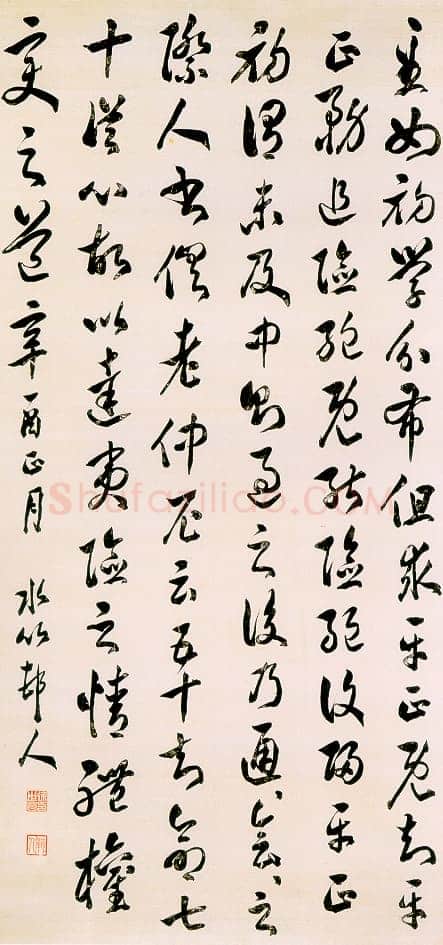 至如初學分布但求平正既知平
正務追險絕既能險絕復歸平正
初謂未及中則過之後乃通、會、之
際人書俱老仲尼云五十知命七
十從心故以達夷險之情體權
變之道辛酉正月 水竹邨人
Shufaziliao.COM